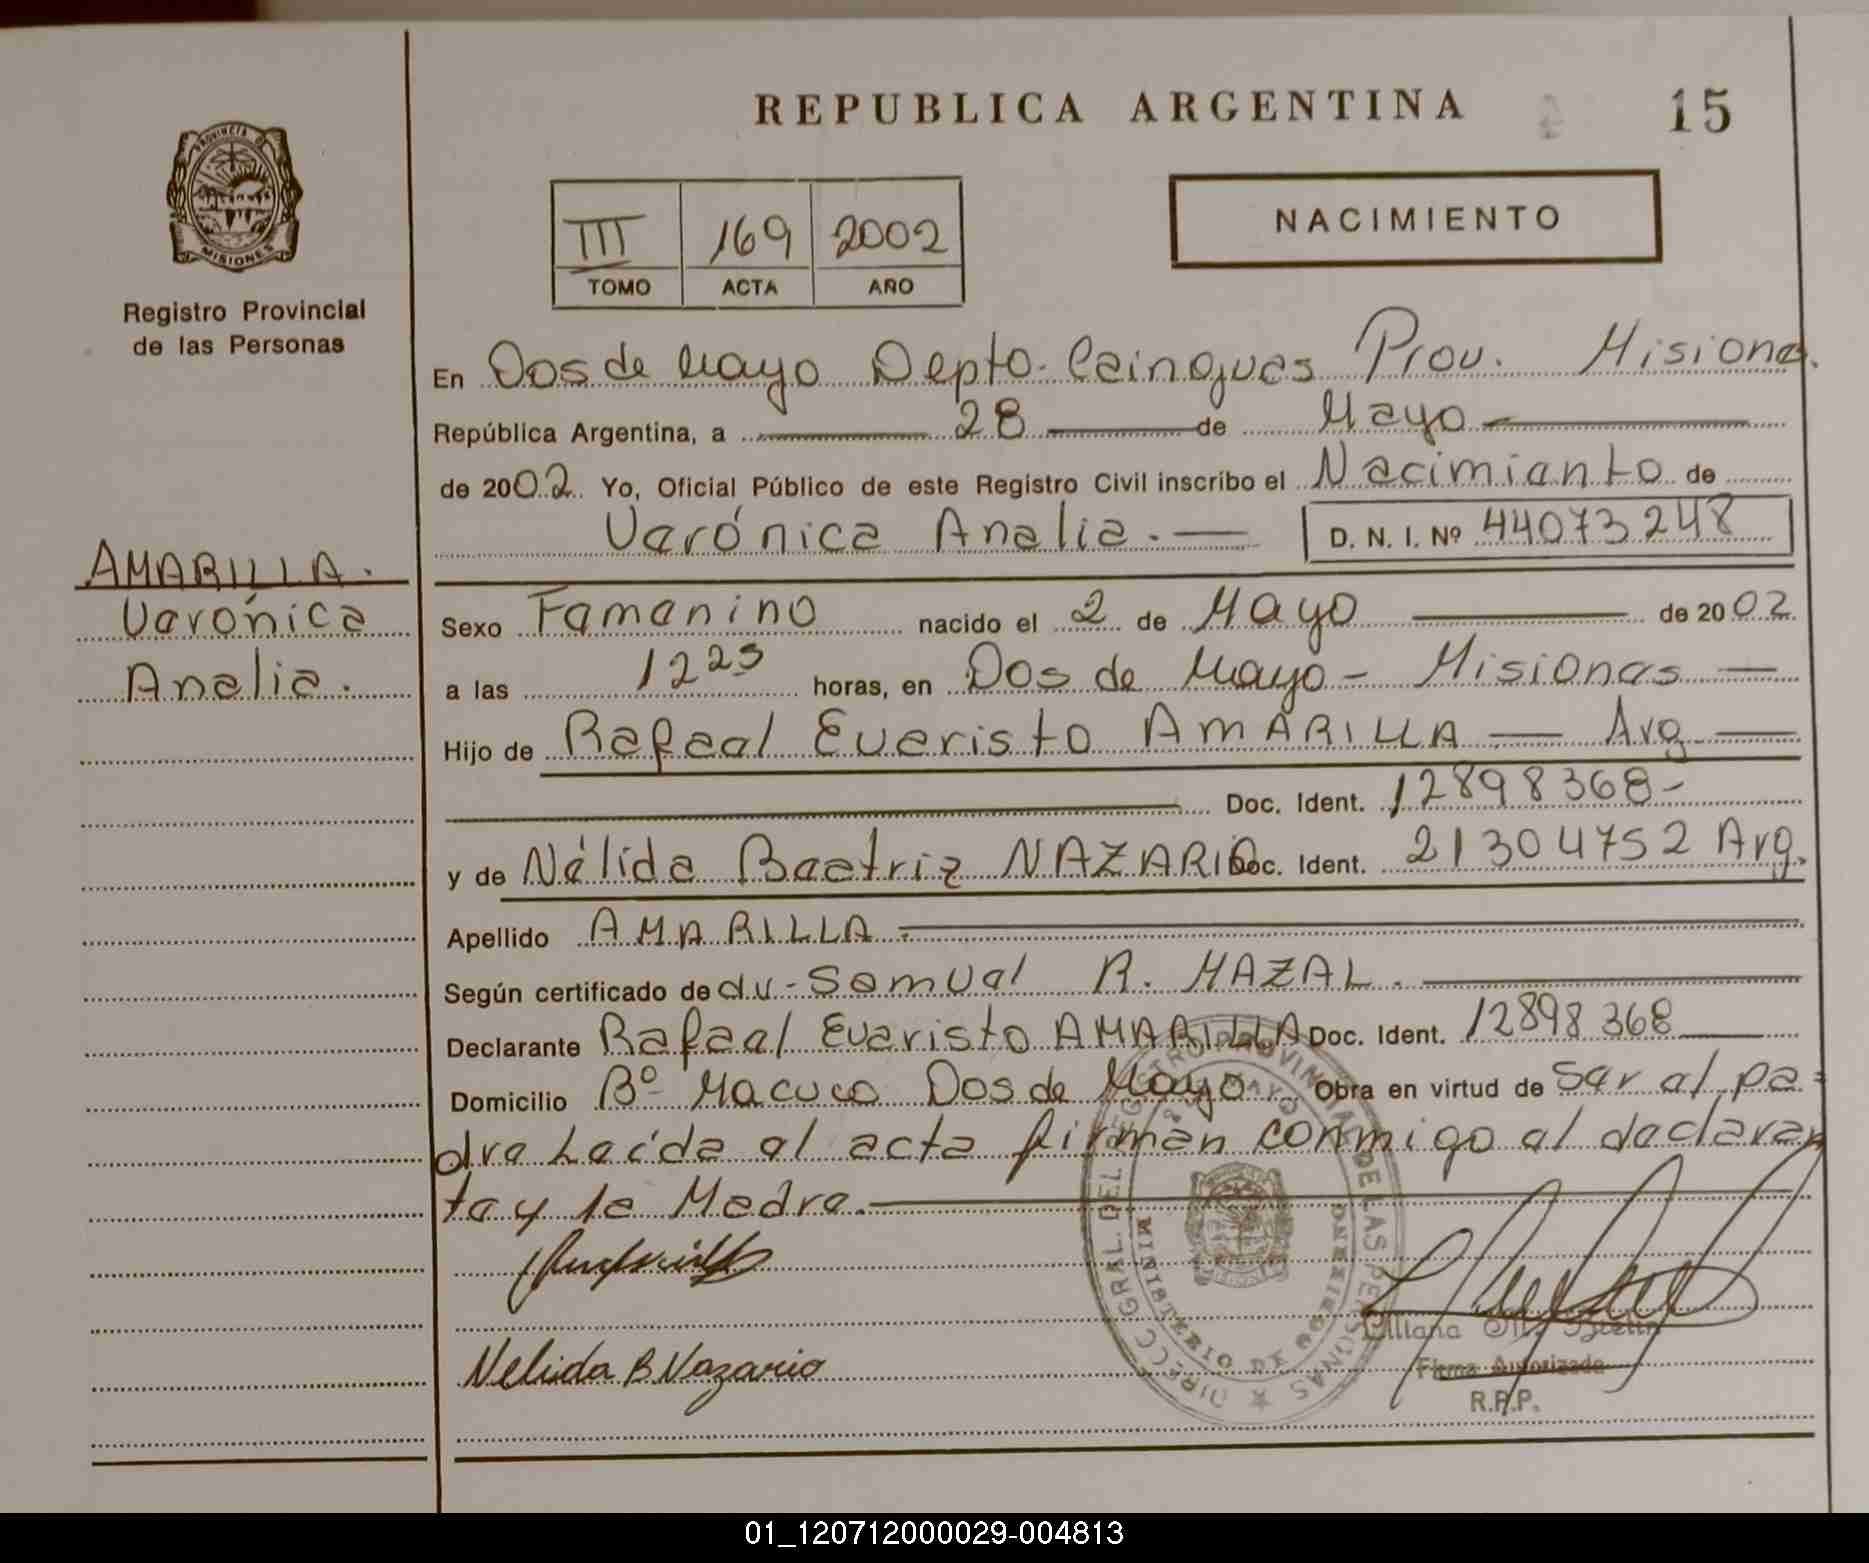 REPUBLICA ARGENTINA 15
PROVINCIA DE
MISIONES
Registro Provincial
de las Personas
III 169 2002
TOMO ACTA AÑO
NACIMIENTO
En Dos de Mayo Depto. Cainguas Prov. Misiones.
República Argentina, a 28 de Mayo
de 2002 Yo, Oficial Público de este Registro Civil inscribo el Nacimiento de
Verónica Analia. D. N. I. Nº 44073248
AMARILLA.
Verónica
Analia.
Sexo Femenino nacido el 2 de Mayo de 2002
a las 12 25 horas, en Dos de Mayo - Misiones
Hijo de Rafael Evaristo AMARILLA Arg
Doc. Ident. 12898368-
y de Nélida Beatriz NAZARIO Doc. Ident. 21304752 Arg.
Apellido AMARILLA
Según certificado de R. MAZAL.
Declarante Rafael Evaristo AMARILLA Doc. Ident. 12898368
Domicilio Bº Macuco Dos de Mayo Obra en virtud de Ser el pa=
dre Leída el acta firman conmigo el declaran
te y la Madre.
Nelida B Nazario
DIRECC GRAL. DEL REGISTRO PROVINCIAL DE LAS PERSONAS
MINISTERIO DE GOBIERNO
Liliana
Firma Autorizada
R.P.P.
01_120712000029-004813